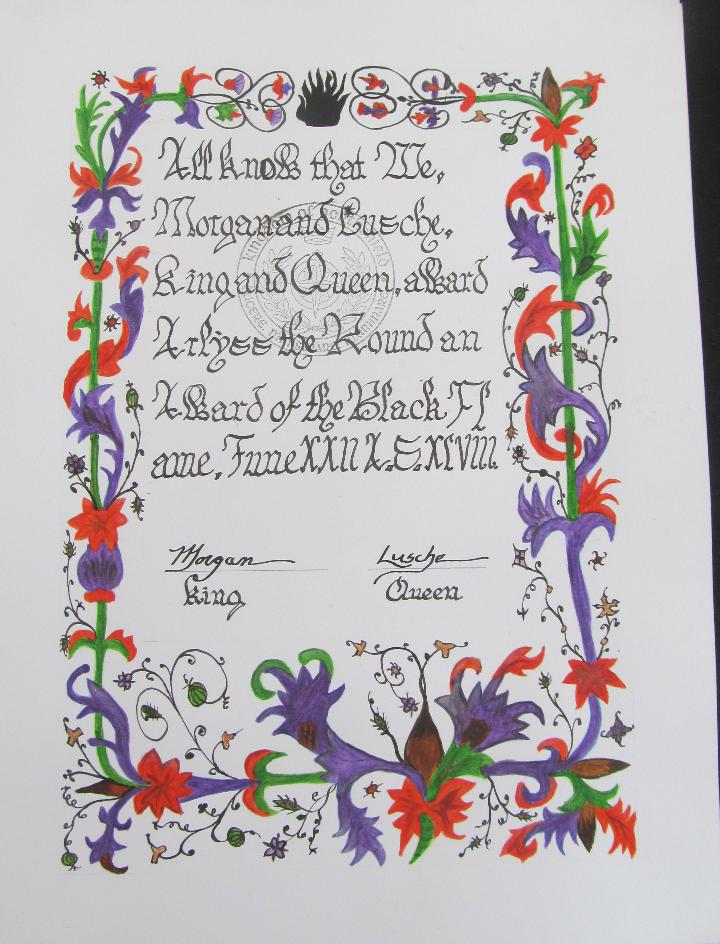 All know that We,
Morgan and Lusche,
King and Queen, award
Arlyss the Round an
Award of the Black Fl
ame, June XXII A.S. XLVIII.
Morgan Lusche
King Queen